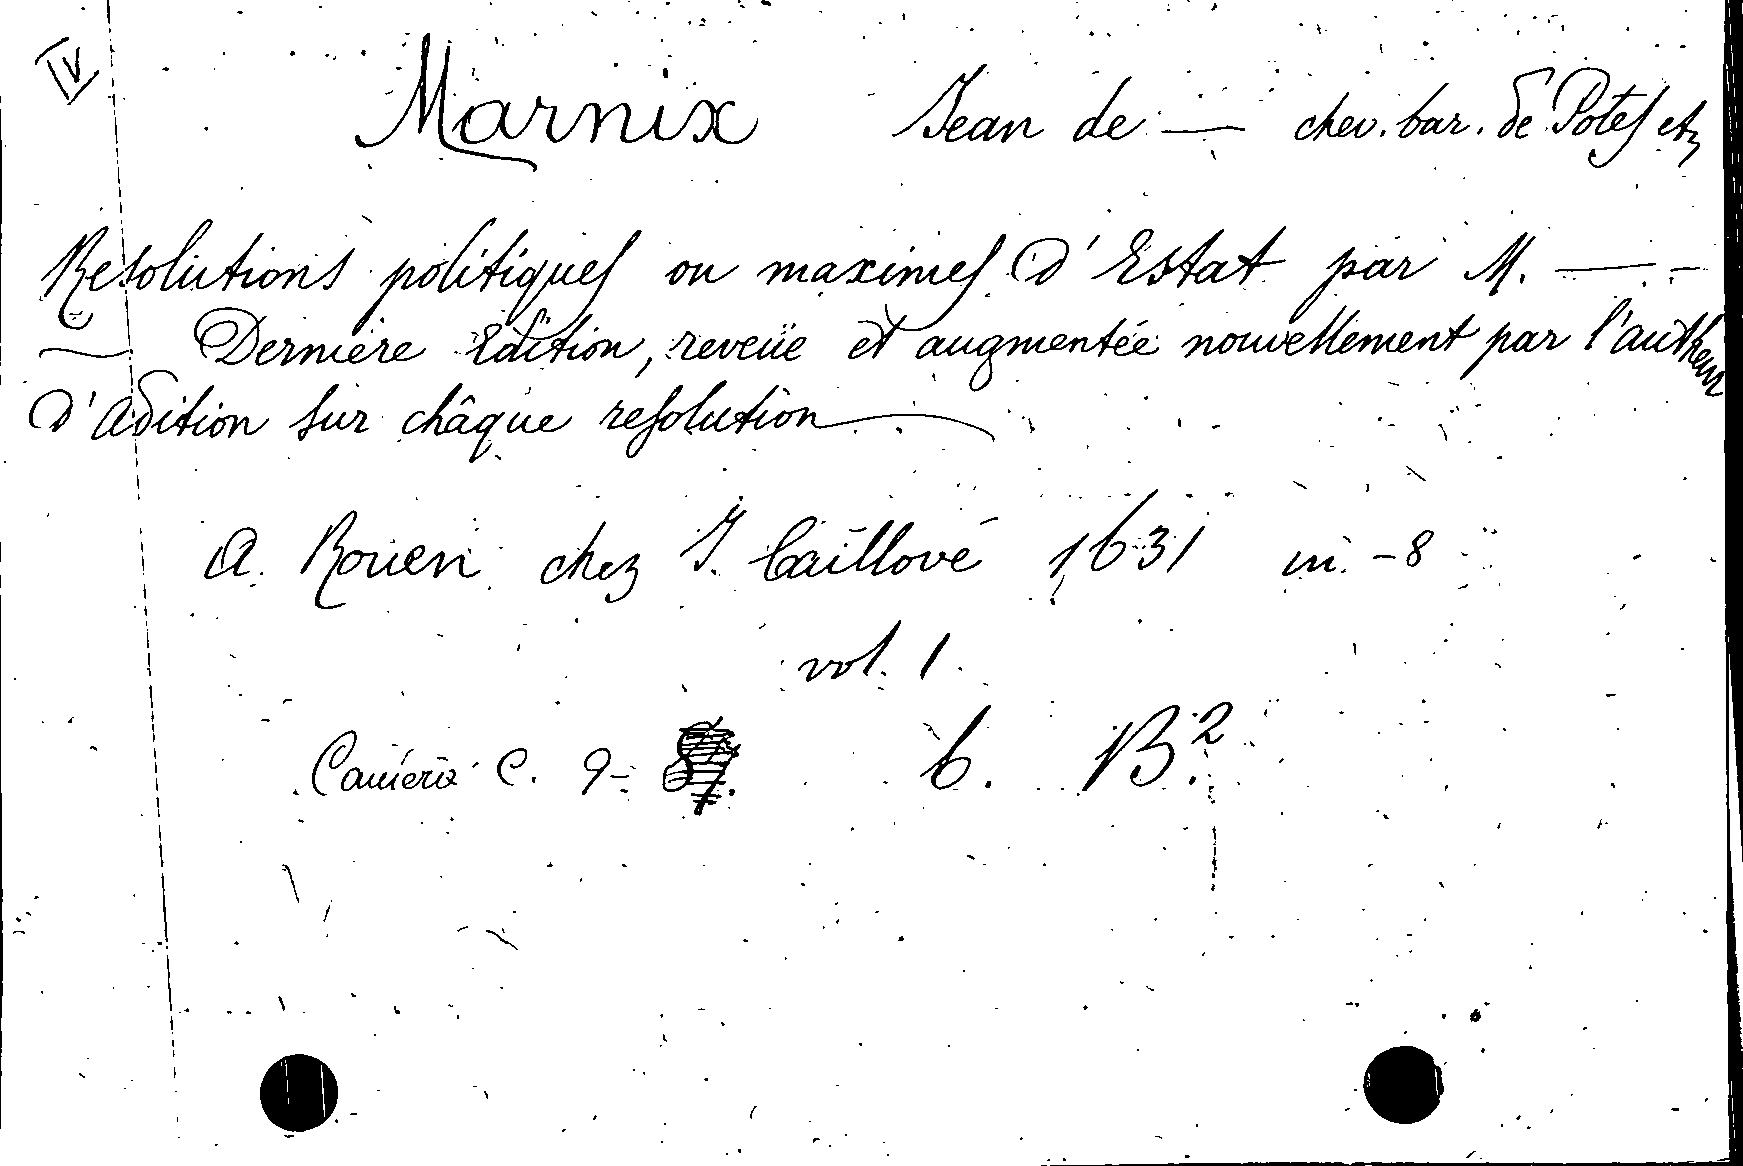 IV
Marnix Jean de — chev. bar. de Potes etz
Resolutions politiques ou maximes d'Estat par M. — -
— Dernière Edition, reveüe et augmentée nouvellement par l'autheur
d'adition sur châque resolution —
A. Rouen chez J. Caillové 1631 in -8
vol. 1.
Camera C. 9- 6. B.2